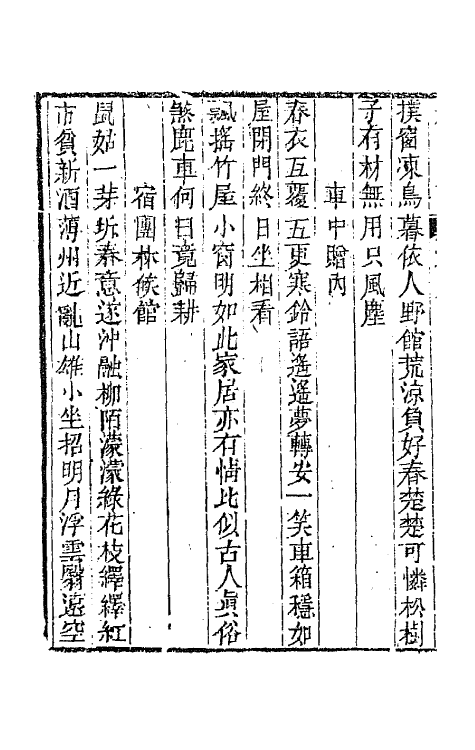 撲窗凍鳥暮依人野館荒涼負好春楚楚可憐松樹
子有材無用只風塵
車中贈內
春衣互覆五更寒鈴語遙遙夢轉安一笑車箱穩如
屋閉門終日坐相看
飄搖竹屋小窗明如此家居亦有情比似古人眞俗
煞鹿車何日竟歸耕
宿團林候館
鼠姑一芽坼春意遂沖融柳陌濛濛綠花枝繹繹紅
市貧新酒薄州近亂山雄小坐招明月浮雲翳遠空